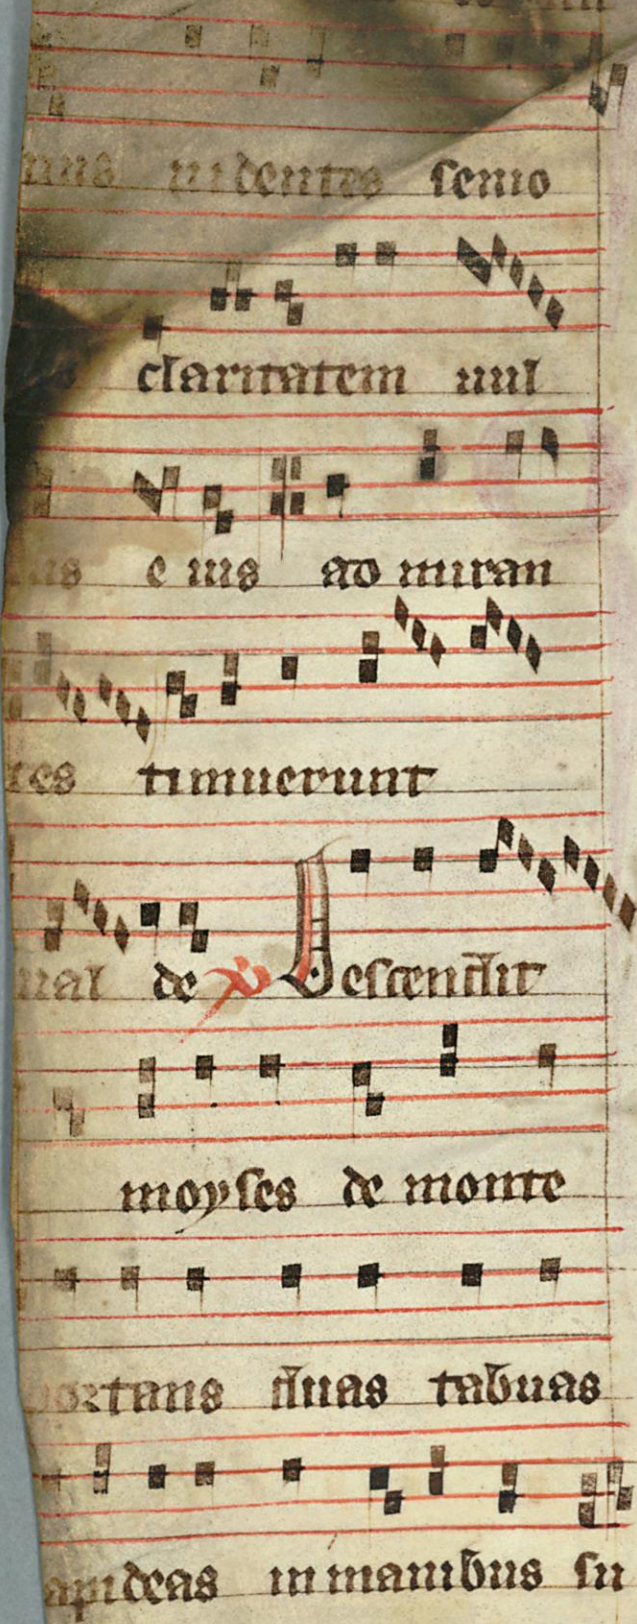 uidentes senio
claritatem uul
e ius ad miran
tes timuerunt
de Descendit
moyses de monte
portans duas tabuas
lapideas in manibus su